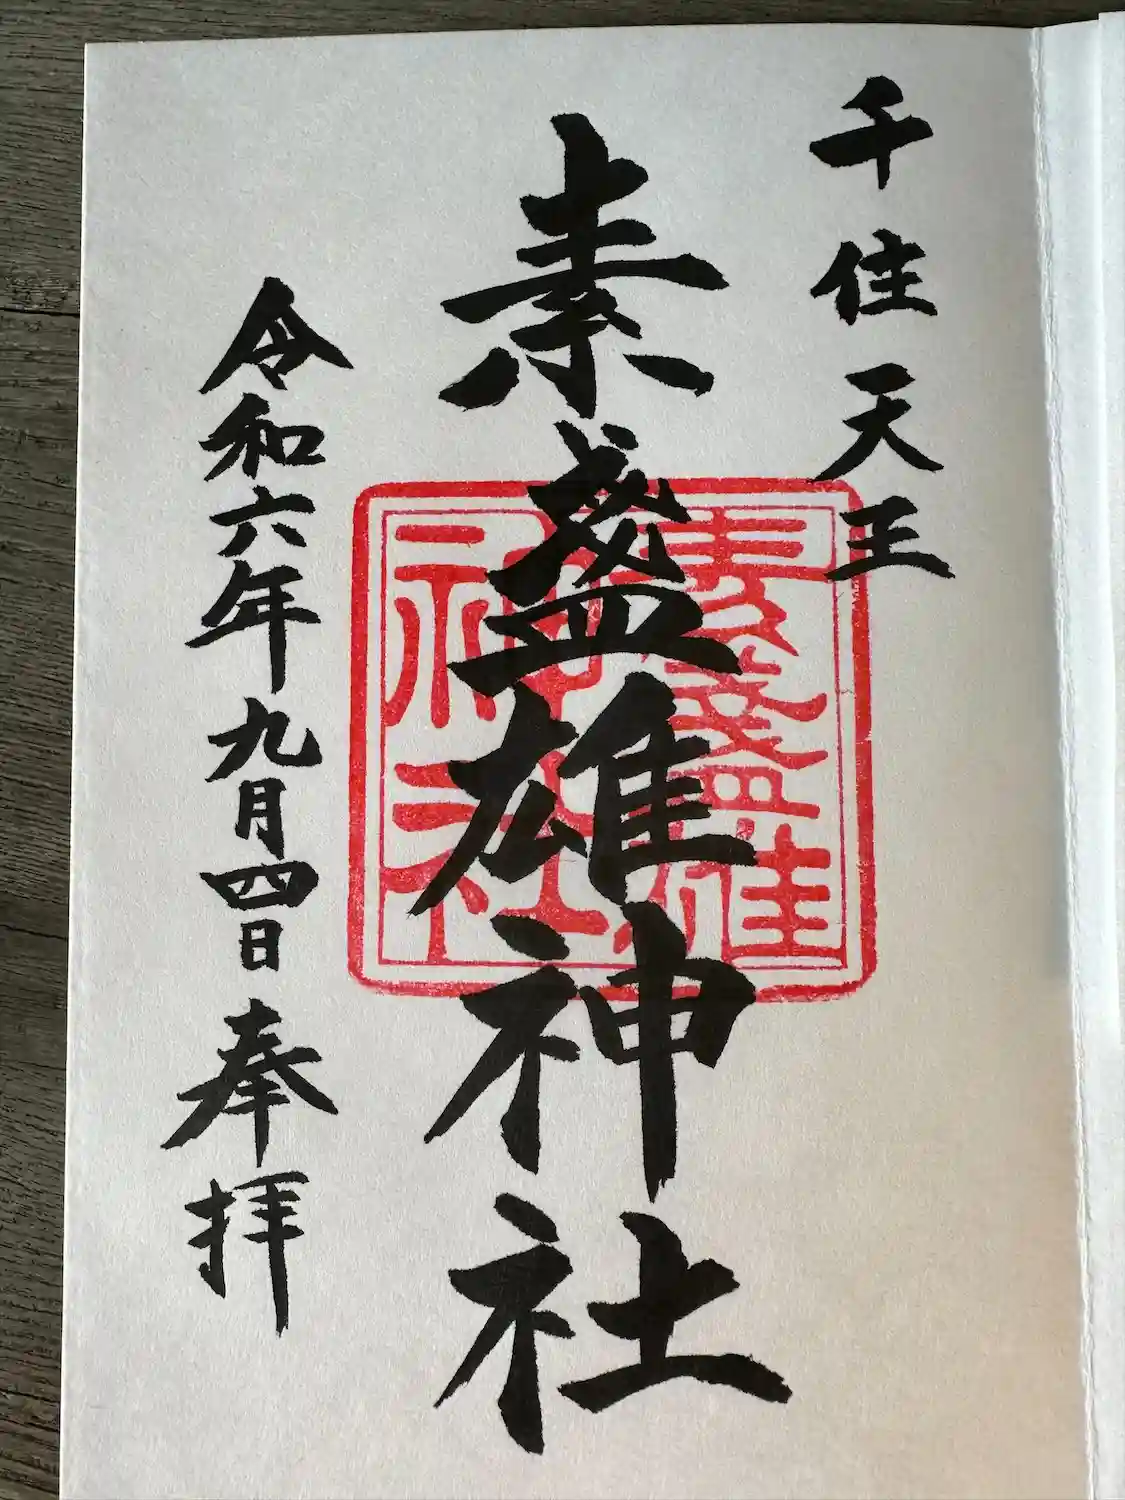 千住天王
素盞雄神社
素盞雄
神社
令和六年九月四日奉拝